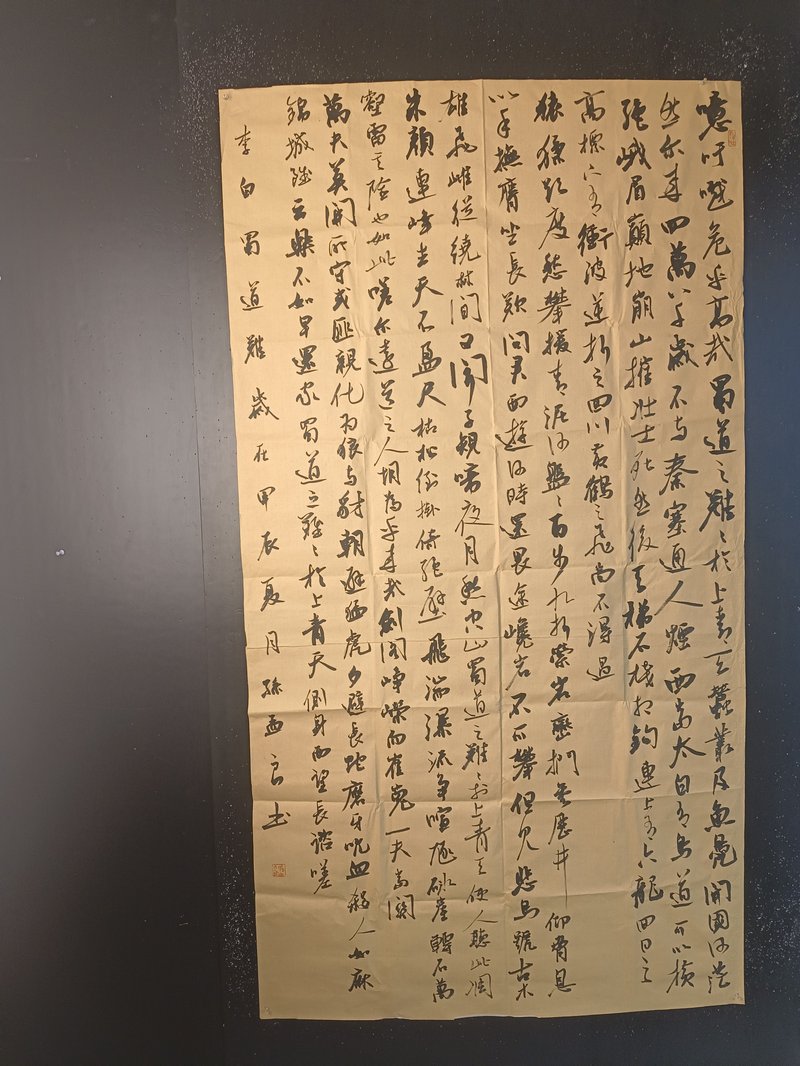 噫吁嚱危乎高哉蜀道之難難於上青天蠶叢及魚鳧開國何茫
然尔来四萬八千歲不与秦塞通人煙西當太白有鳥道可以橫
絕峨眉巔地崩山摧壯士死然後天梯石棧相鉤連上有六龍回日之
高標下有衝波逆折之回川黃鶴之飛尚不得過
猿猱欲度愁攀援青泥何盤盤百步九折縈岩巒捫參歷井仰脅息
以手撫膺坐長歎問君西遊何時還畏途巉岩不可攀但見悲鳥號古木
雄飛雌從繞林間又聞子規啼夜月愁空山蜀道之難難於上青天使人聽此凋
朱顏連峰去天不盈尺枯松倒掛倚絕壁飛湍瀑流爭喧豗砯崖轉石萬
壑雷其險也如此嗟尔遠道之人胡為乎来哉劍閣崢嶸而崔嵬一夫當關
萬夫莫開所守或匪親化為狼与豺朝避猛虎夕避長蛇磨牙吮血殺人如麻
錦城雖云樂不如早還家蜀道之難難於上青天側身西望長諮嗟
李白蜀道難歲在甲辰夏月孫孟良书